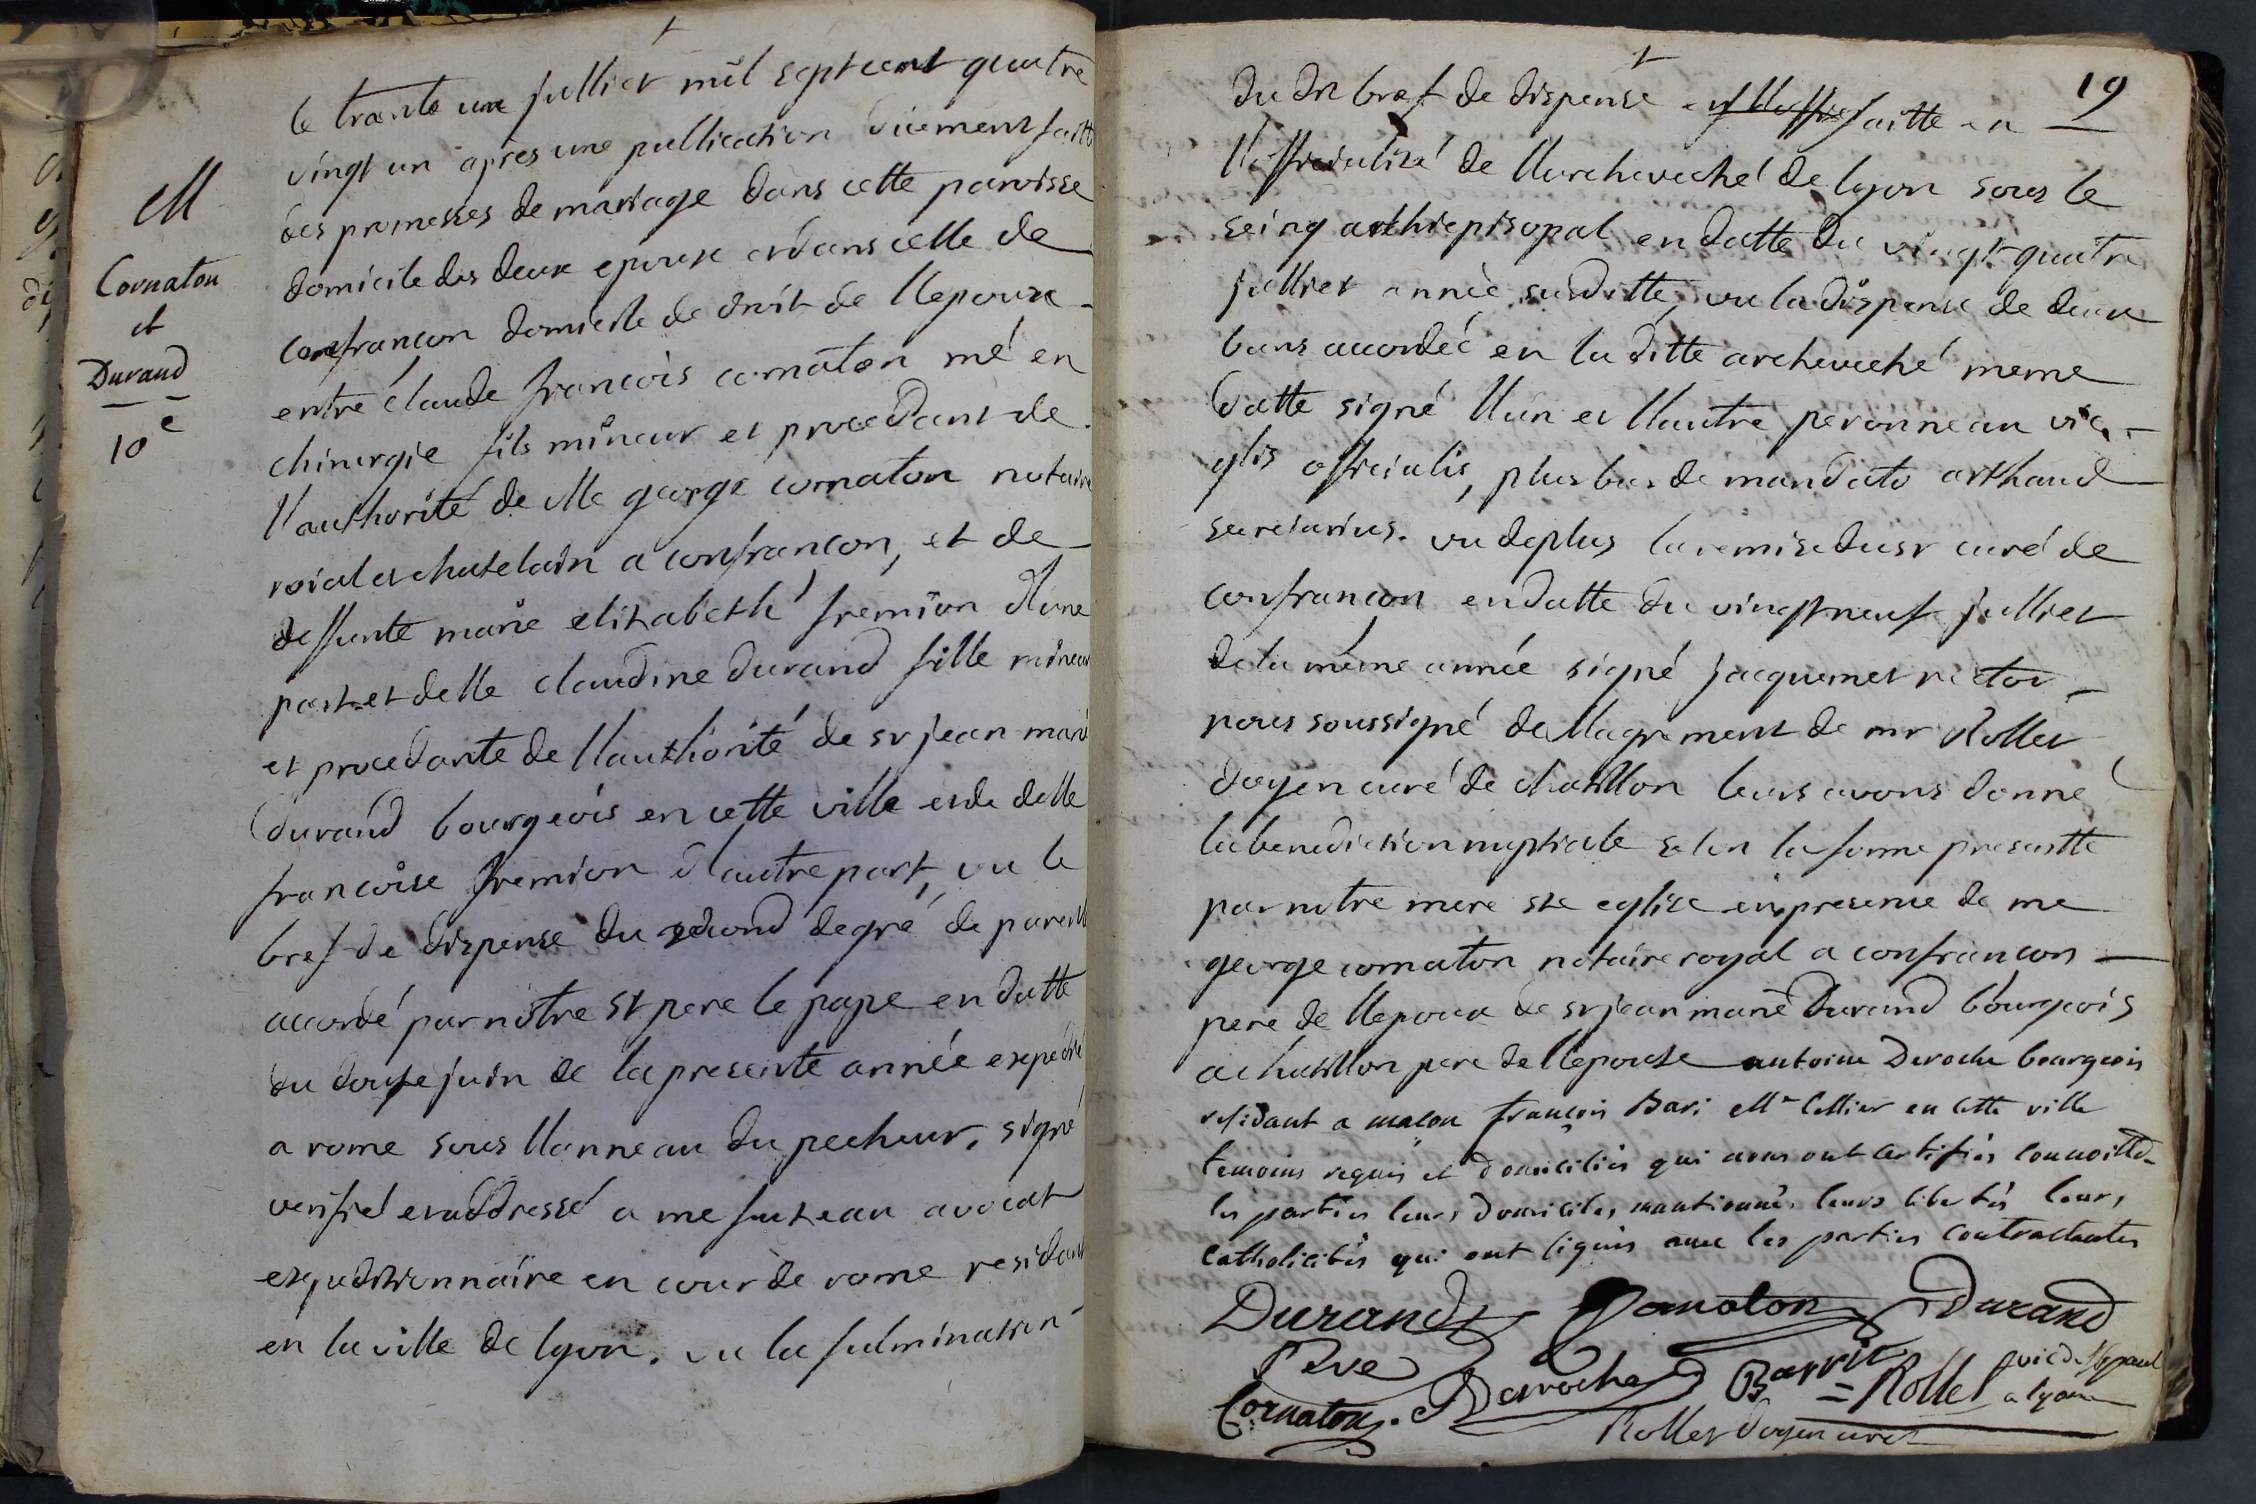 M
Cornaton
et
Durand
10e
le trante un juillier mil septcent quatre
vingt un apres une publication duement faitte
des promesses de mariage dans cette paroisse
domicile des deux epoux et dans celle de
confrancon domicile de droit de llepoux
entre claude francois cornaton mé en
chirurgie fils mineur et procedant de
l'authorité de Me george cornaton notaire
roial et chatelain a confrancon, et de
deffunte marie elizabeth fremion d'une
part et delle claudine durand fille mineur
et procedante de llauthorité de sr jean marie
durand bourgeois en cette ville et de delle
francoise fremion d'autre part, vu le
bref de dispense du second degré de parent
accordé par nôtre st pere le pape en datte
du douse juin de la presente année expedié
a rome sous llanneau du pecheur, signé
verifié et addressé a me avocat
expeditionnaire en cour de rome residant
en la ville de lyon. vu la fulmination
19
du dit bref de dispense faitte en
l'officialité de llarcheveché de lyon sous le
seing archiepisopal en datte du vingt quatre
juillier année susditte, vu la dispense de deux
bans accordée en la ditte archeveché meme
datte signé llun et llautre peronneau vic.
glis officialis, plus bas de mandato arthaud
secretarius. vu de plus la remise du sr curé de
confrancon en datte du vingt neuf juillier
de la même année signé jacquemet rector
nous soussigné de llagrement de mr Rollet
doyen curé de chatillon leurs avons donné
la benediction nuptiale selon la forme prescritte
par nôtre mere ste eglise en presence de me
george cornaton notaire royal a confrancon
pere de llepoux de sr jean marie Durand bourgeois
a chatillon pere de llepouse antoine Deroche bourgeois
residant a macon françois Bari Me Cellier en cette ville
temoins requis et domiciliés qui nous ont certifiés connoitre
les parties leurs domiciles mantionnés leurs libertés leurs
catholicités qui ont signés avec les parties contractantes
Durand Cornaton Durand
Pere
Cornaton. Deroche Barry = Rollet vic de st paul
a lyon
Rollet doyen curé